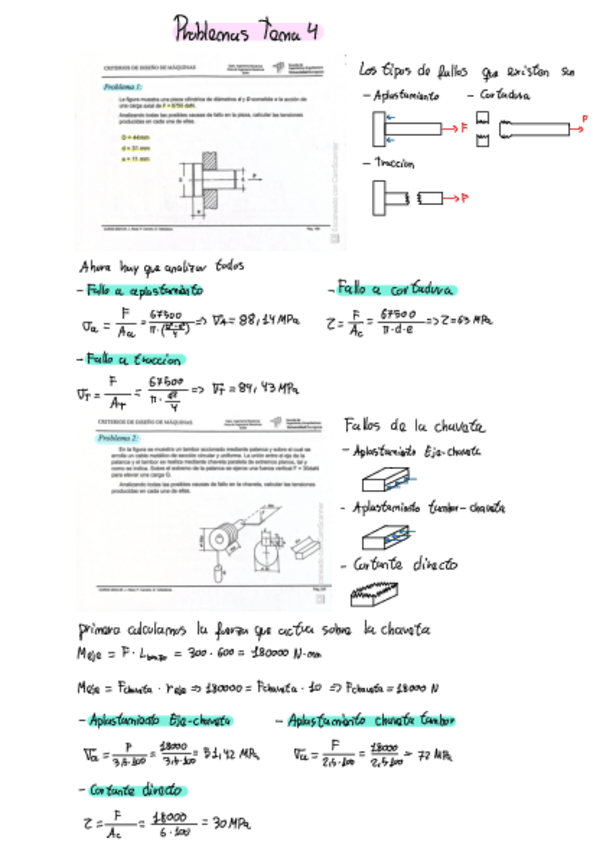 Problemas Tema 4
CRITERIOS DE DISEÑO DE MÁQUINAS
Problema 1:
La figura muestra una pieza cilíndrica de diámetros d y D sometida a la acción de
una carga axial de F = 6750 daN.
Analizando todas las posibles causas de fallo en la pieza, calcular las tensiones
producidas en cada una de ellas.
D = 44mm
d = 31 mm
e = 11 mm
Los tipos de fallos que existen son
- Aplastamiento - Cortadura
F
P
- Traccion
P
Ahora hay que analizar todos
- Fallo a aplastamiento
σa = F/Aa = 67500/π·(D²-d²/4) => σA = 88,14 MPa
- Fallo a cortadura
τ = F/Ac = 67500/π·d·e => τ = 63 MPa
- Fallo a traccion
σT = F/AT = 67500/π·d²/4 => σT = 89,43 MPa
CRITERIOS DE DISEÑO DE MÁQUINAS
Problema 2:
En la figura se muestra un tambor accionado mediante palanca y sobre el cual se
arrolla un cable metálico de sección circular y uniforme. La unión entre el eje de la
palanca y el tambor se realiza mediante chaveta paralela de extremos planos, tal y
como se indica. Sobre el extremo de la palanca se ejerce una fuerza vertical F = 30daN
para elevar una carga Q.
Analizando todas las posibles causas de fallo en la chaveta, calcular las tensiones
producidas en cada una de ellas.
Fallos de la chaveta
- Aplastamiento Eje-chaveta
- Aplastamiento tambor-chaveta
- Cortante directo
primero calculamos la fuerza que actua sobre la chaveta
Meje = F · Lbrazo = 300 · 600 = 180000 N·mm
Meje = Fchaveta · reje => 180000 = Fchaveta · 10 => Fchaveta = 18000 N
- Aplastamiento Eje-chaveta
σa = F/3,5·100 = 18000/3,5·100 = 51,42 MPa
- Aplastamiento chaveta tambor
σa = F/2,5·100 = 18000/2,5·100 = 72 MPa
- Cortante directo
τ = F/Ac = 18000/6·100 = 30 MPa